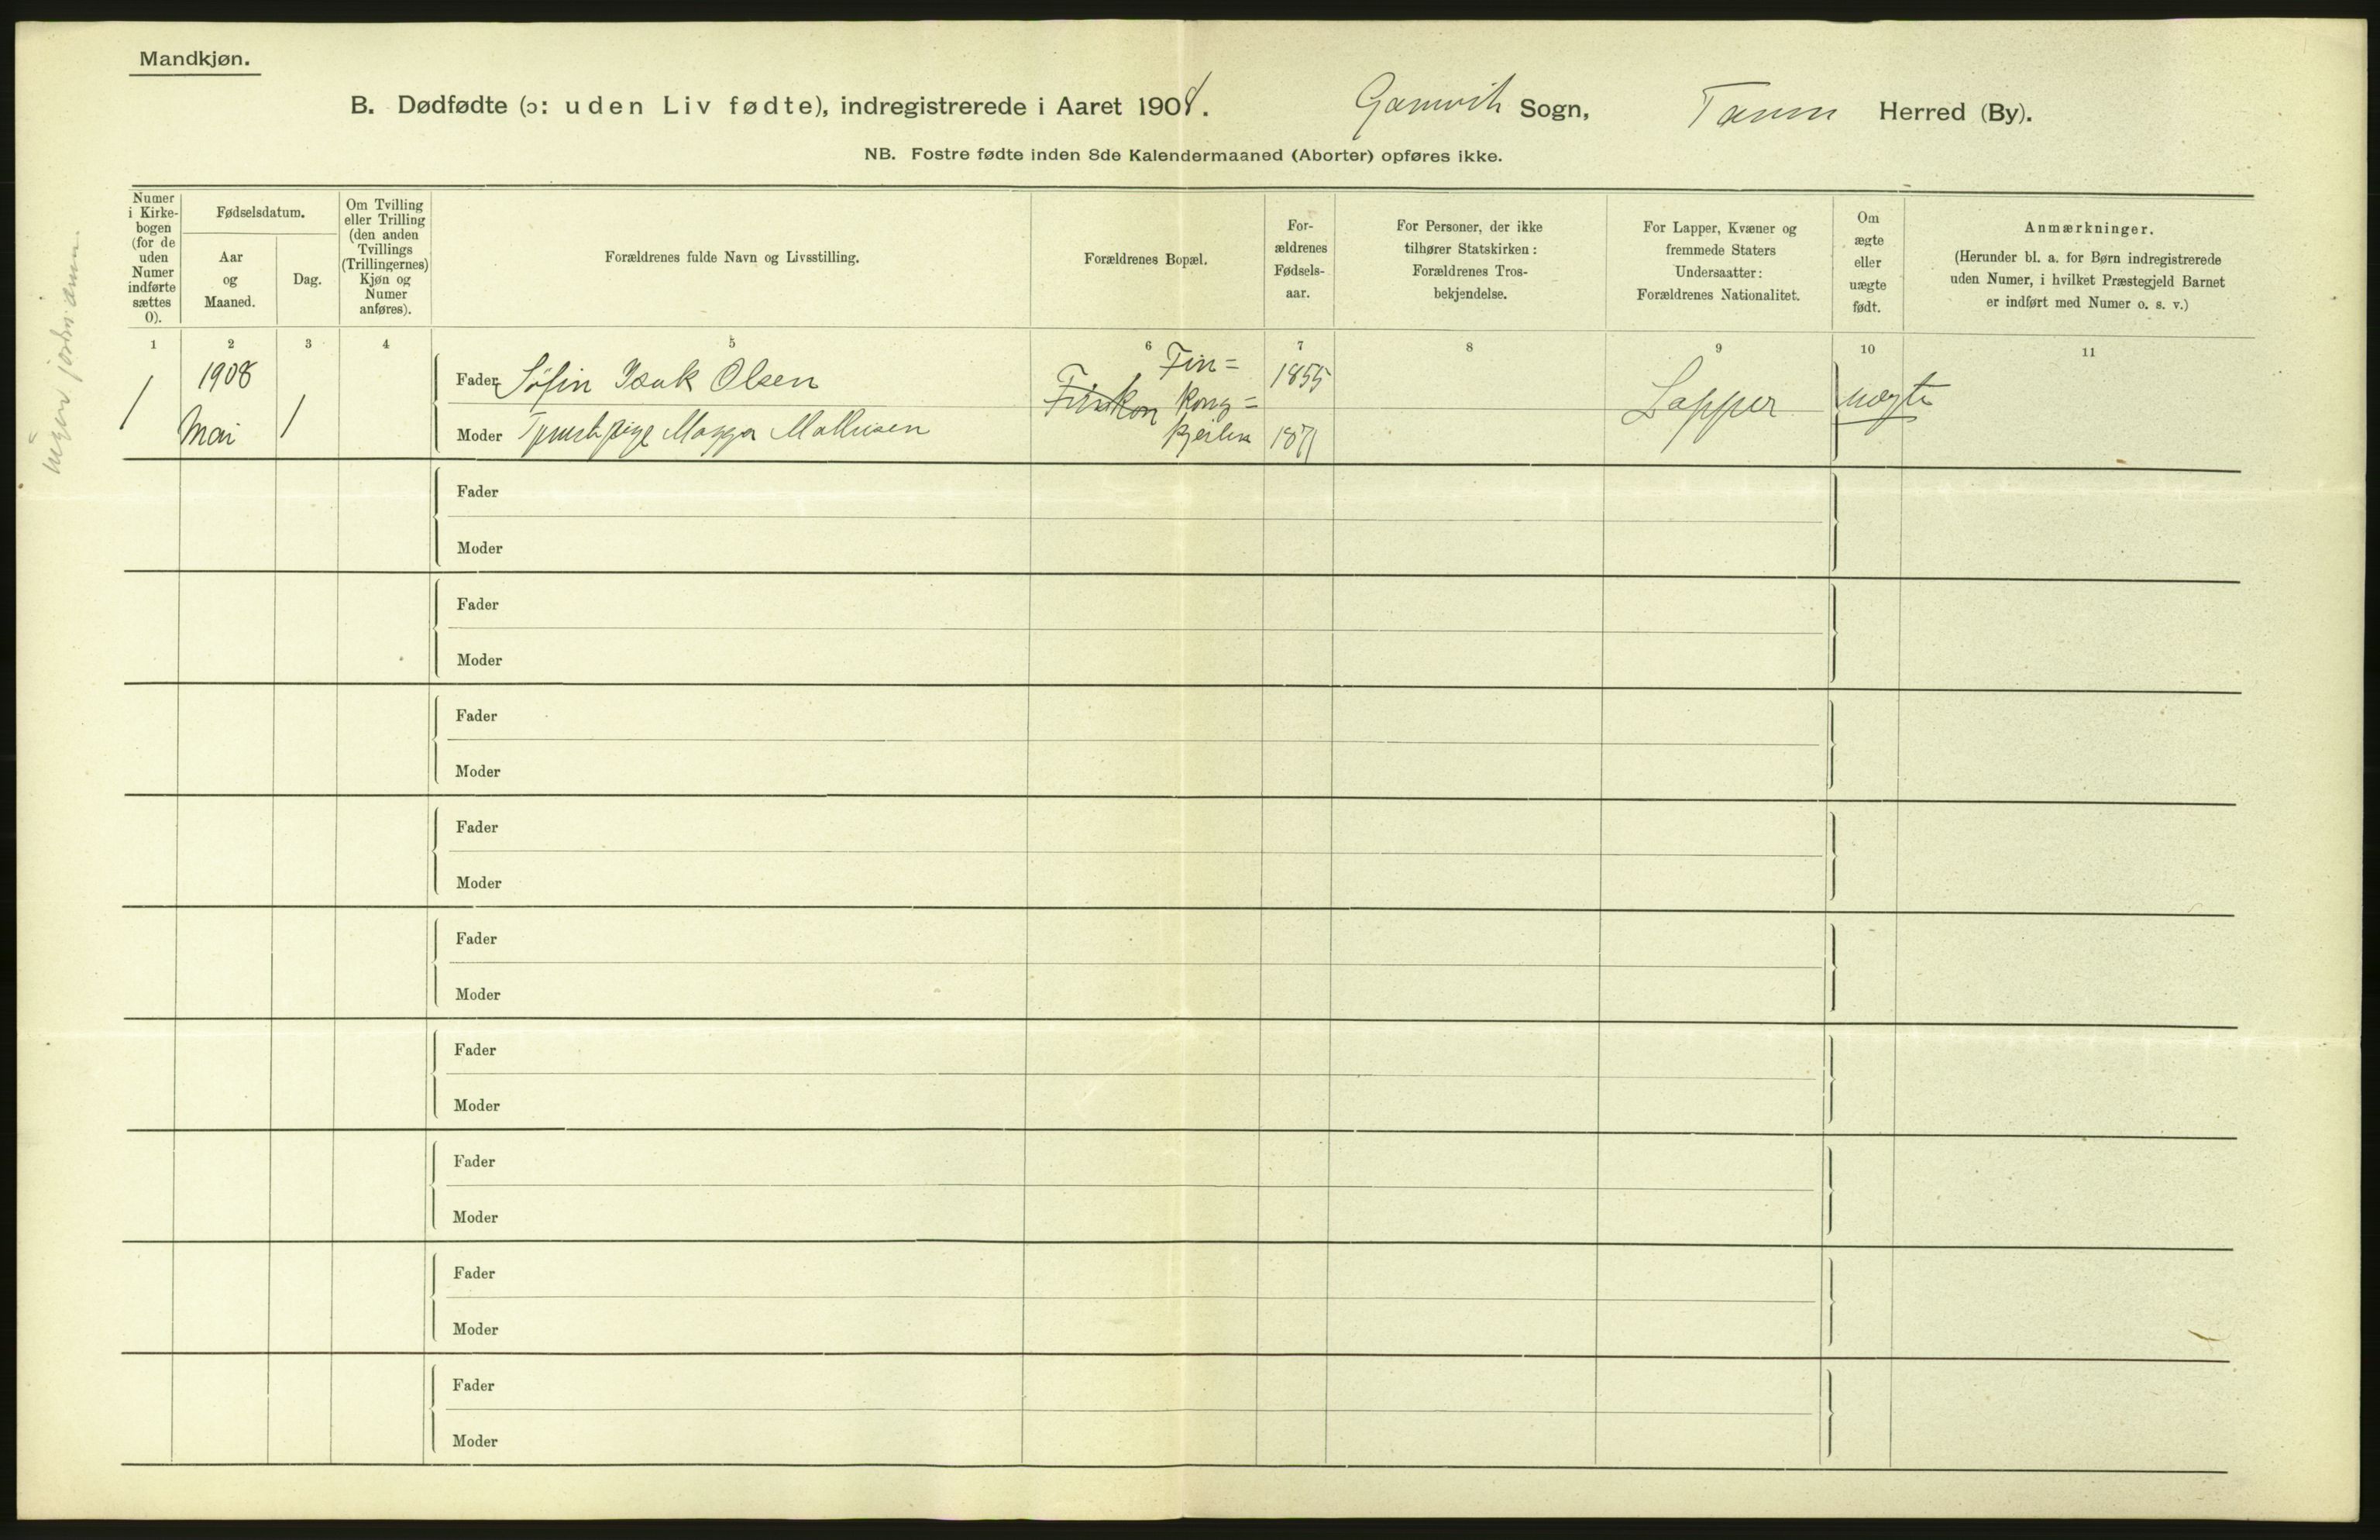 Mandkjøn.
B. Dødfødte (ɔ: uden Liv fødte), indregistrerede i Aaret 1908. Gamvik Sogn, Tanen Herred (By).
NB. Fostre fødte inden 8de Kalendermaaned (Aborter) opføres ikke.
Numer
i Kirke-
bogen
(for de
uden
Numer
indførte
sættes
0).
Fødselsdatum.
Aar
og
Maaned.
Dag.
Om Tvilling
eller Trilling
(den anden
Tvillings
(Trillingernes)
Kjøn og
Numer
anføres).
Forældrenes fulde Navn og Livsstilling.
Forældrenes Bopæl.
For-
ældrenes
Fødsels-
aar.
For Personer, der ikke
tilhører Statskirken:
Forældrenes Tros-
bekjendelse.
For Lapper, Kvæner og
fremmede Staters
Undersaatter:
Forældrenes Nationalitet.
Om
ægte
eller
uægte
født.
Anmærkninger.
(Herunder bl. a. for Børn indregistrerede
uden Numer, i hvilket Præstegjeld Barnet
er indført med Numer o. s. v.)
1 2 3 4 5 6 7 8 9 10 11
1
1908
Mai
1
Fader Søfin Isak Olsen
Moder Tjenestpige Magga Mathisen
Fin=
kong=
kjeilen
1855
1871
Lapper
uægte
Fader
Moder
Fader
Moder
Fader
Moder
Fader
Moder
Fader
Moder
Fader
Moder
Fader
Moder
Fader
Moder
Fader
Moder